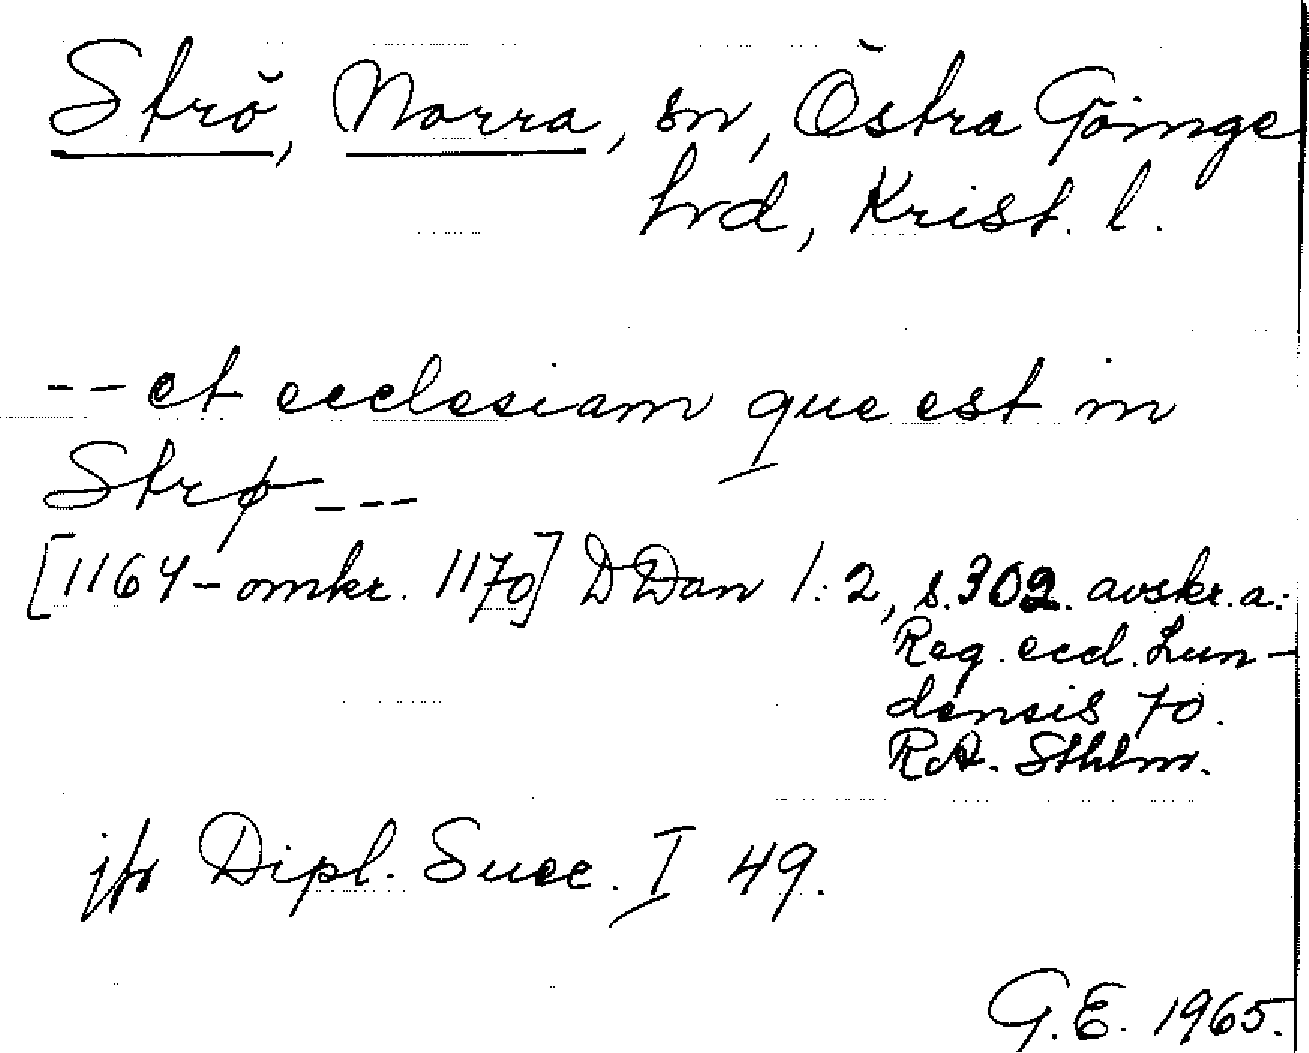 Strö, Norra, sn, Östra Göinge
hrd, Krist. l.
-- et ecclesiam que est in
Strø ---
[1164-omkr. 1170] DDan 1:2, s. 302. avskr. a:
Reg. eccl. Lun-
densis fo.
RA. Sthlm.
jfr Dipl. Suec. I 49.
G.E. 1965.